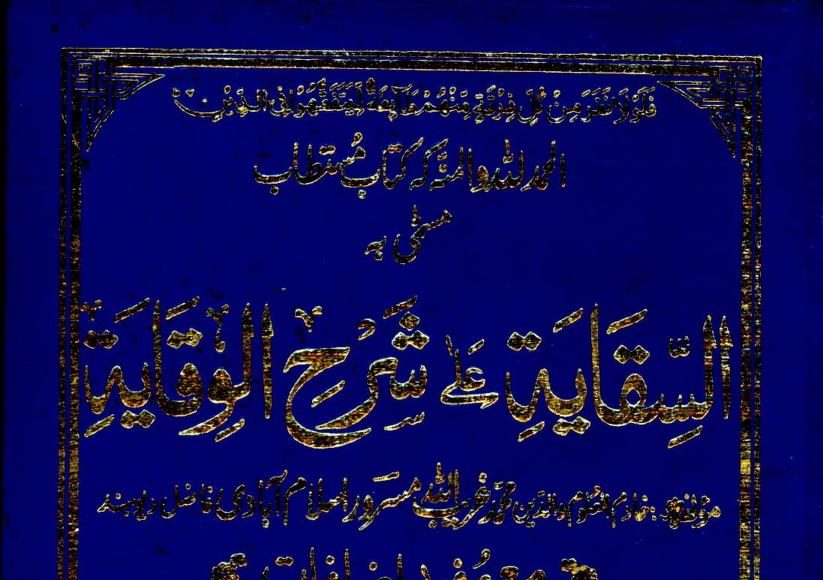 فَلَوْلَا نَفَرَ مِنْ كُلِّ فِرْقَةٍ مِنْهُمْ طَائِفَةٌ لِيَتَفَقَّهُوا فِي الدِّيْنِ
الحمد لله والمنۃ کہ کتاب مُستطاب
مسمّٰی بہ
السِّقَايَةِ عَلٰى شَرْحِ الوِقَايَةِ
خادم العلوم والدین محمد غریب اللہ مسرور اسلام آبادی فاضل دیوبند
مع مفید اضافات